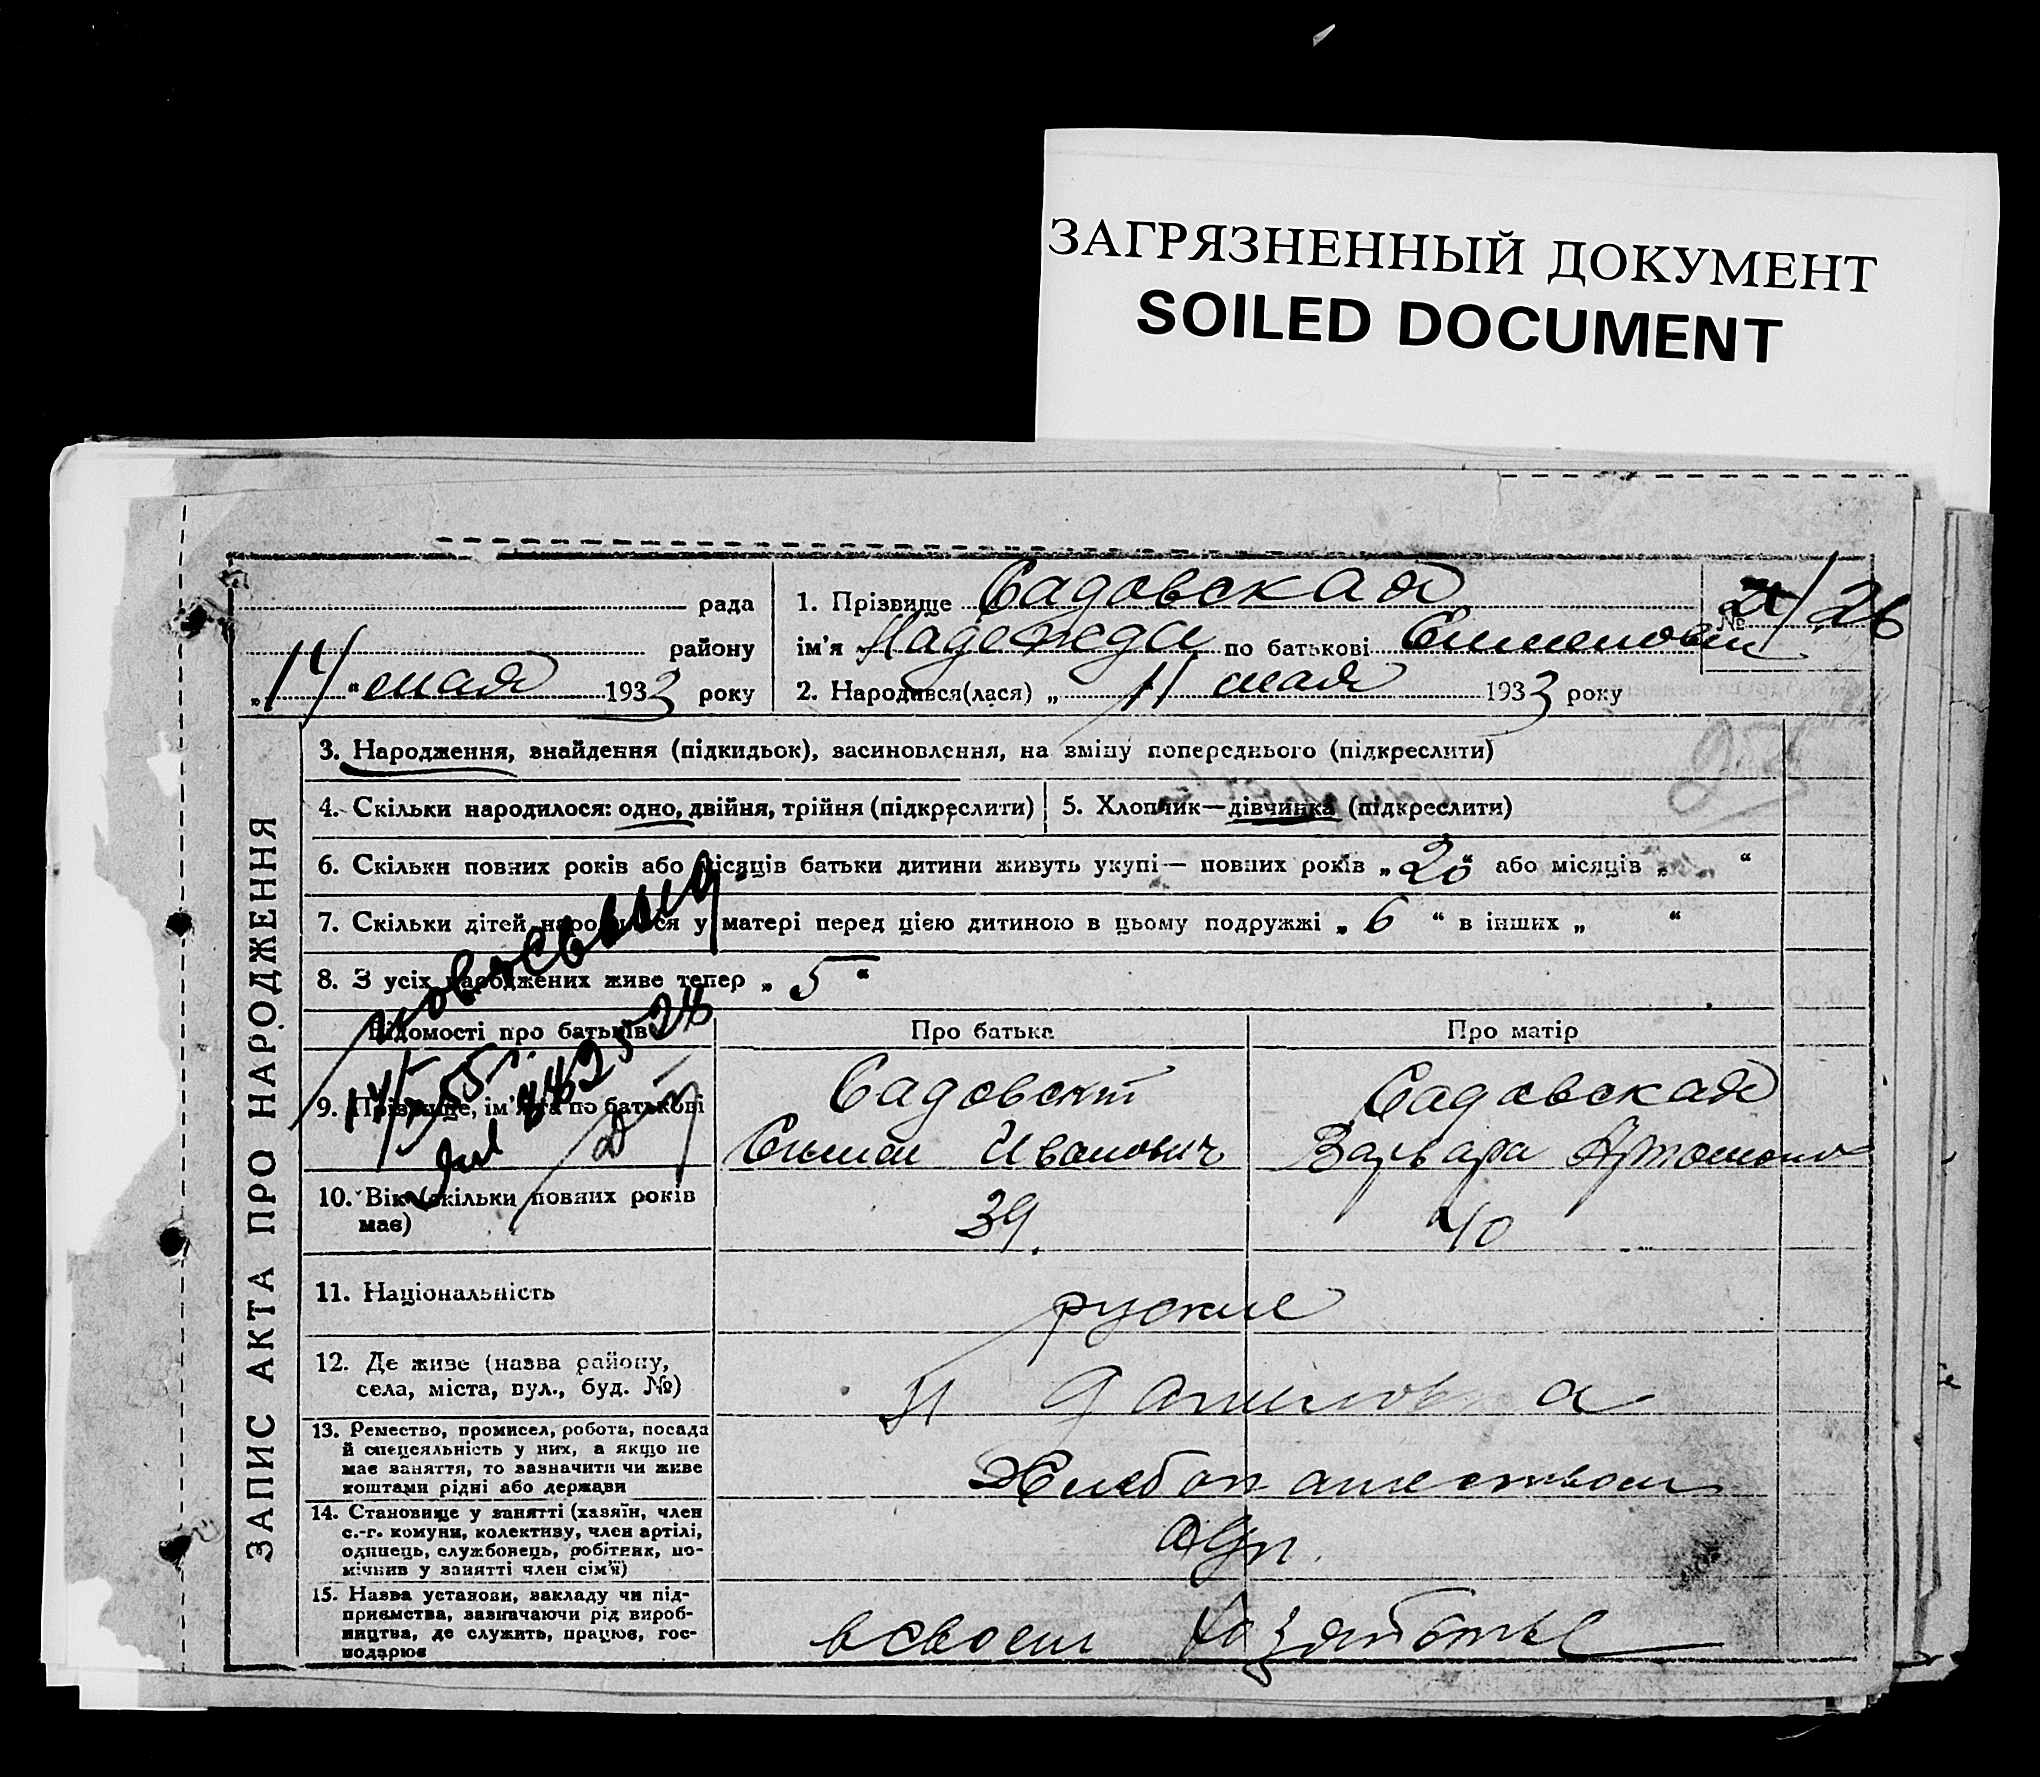 ЗАГРЯЗНЕННЫЙ ДОКУМЕНТ
SOILED DOCUMENT
рада
району
„ 14 “ мая 1933 року
1. Прізвище Садовская
ім'я Надежда по батькові
2. Народився(лася) „ 11 мая 1933 року
№ 26
ЗАПИС АКТА ПРО НАРОДЖЕННЯ
3. Народження, знайдення (підкидьок), засиновлення, на зміну попереднього (підкреслити)
4. Скільки народилося: одно, двійня, трійня (підкреслити)
5. Хлопчик—дівчинка (підкреслити)
6. Скільки повних років або місяців батьки дитини живуть укупі — повних років „ 20 “ або місяців „ “
7. Скільки дітей народилося у матері перед цією дитиною в цьому подружжі „ 6 “ в інших „ “
8. З усіх народжених живе тепер „ 5 “
Відомості про батьків
Про батька
Про матір
9. Прізвище, ім'я та по батькові
Садовский
Иванович
Садовская
Варвара
10. Вік (скільки повних років
має)
39
40
11. Національність
руские
12. Де живе (назва району,
села, міста, вул., буд. №)
13. Ремество, промисел, робота, посада
й спецсяльність у них, а якщо не
має заняття, то зазначити чи живе
коштами рідні або держави
Хлебопашеством
14. Становище у занятті (хазяїн, член
с.-г. комуни, колективу, член артілі,
одинець, службовець, робітник, по-
мічник у занятті член сім'ї)
одн.
15. Назва установи, закладу чи під-
приємства, зазначаючи рід вироб-
ництва, де служить, працює, гос-
подарює
в своем